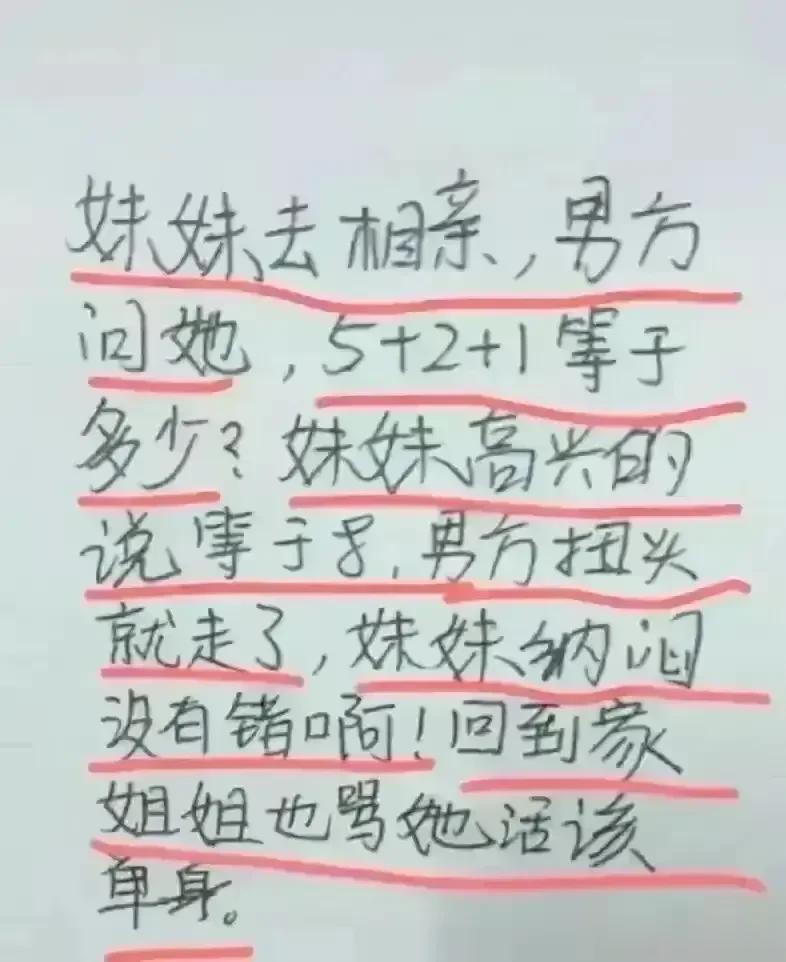 妹妹去相亲，男方
问她，5+2+1等于
多少？妹妹高兴的
说等于8，男方扭头
就走了，妹妹纳闷
没有错啊！回到家
姐姐也骂她活该
单身。